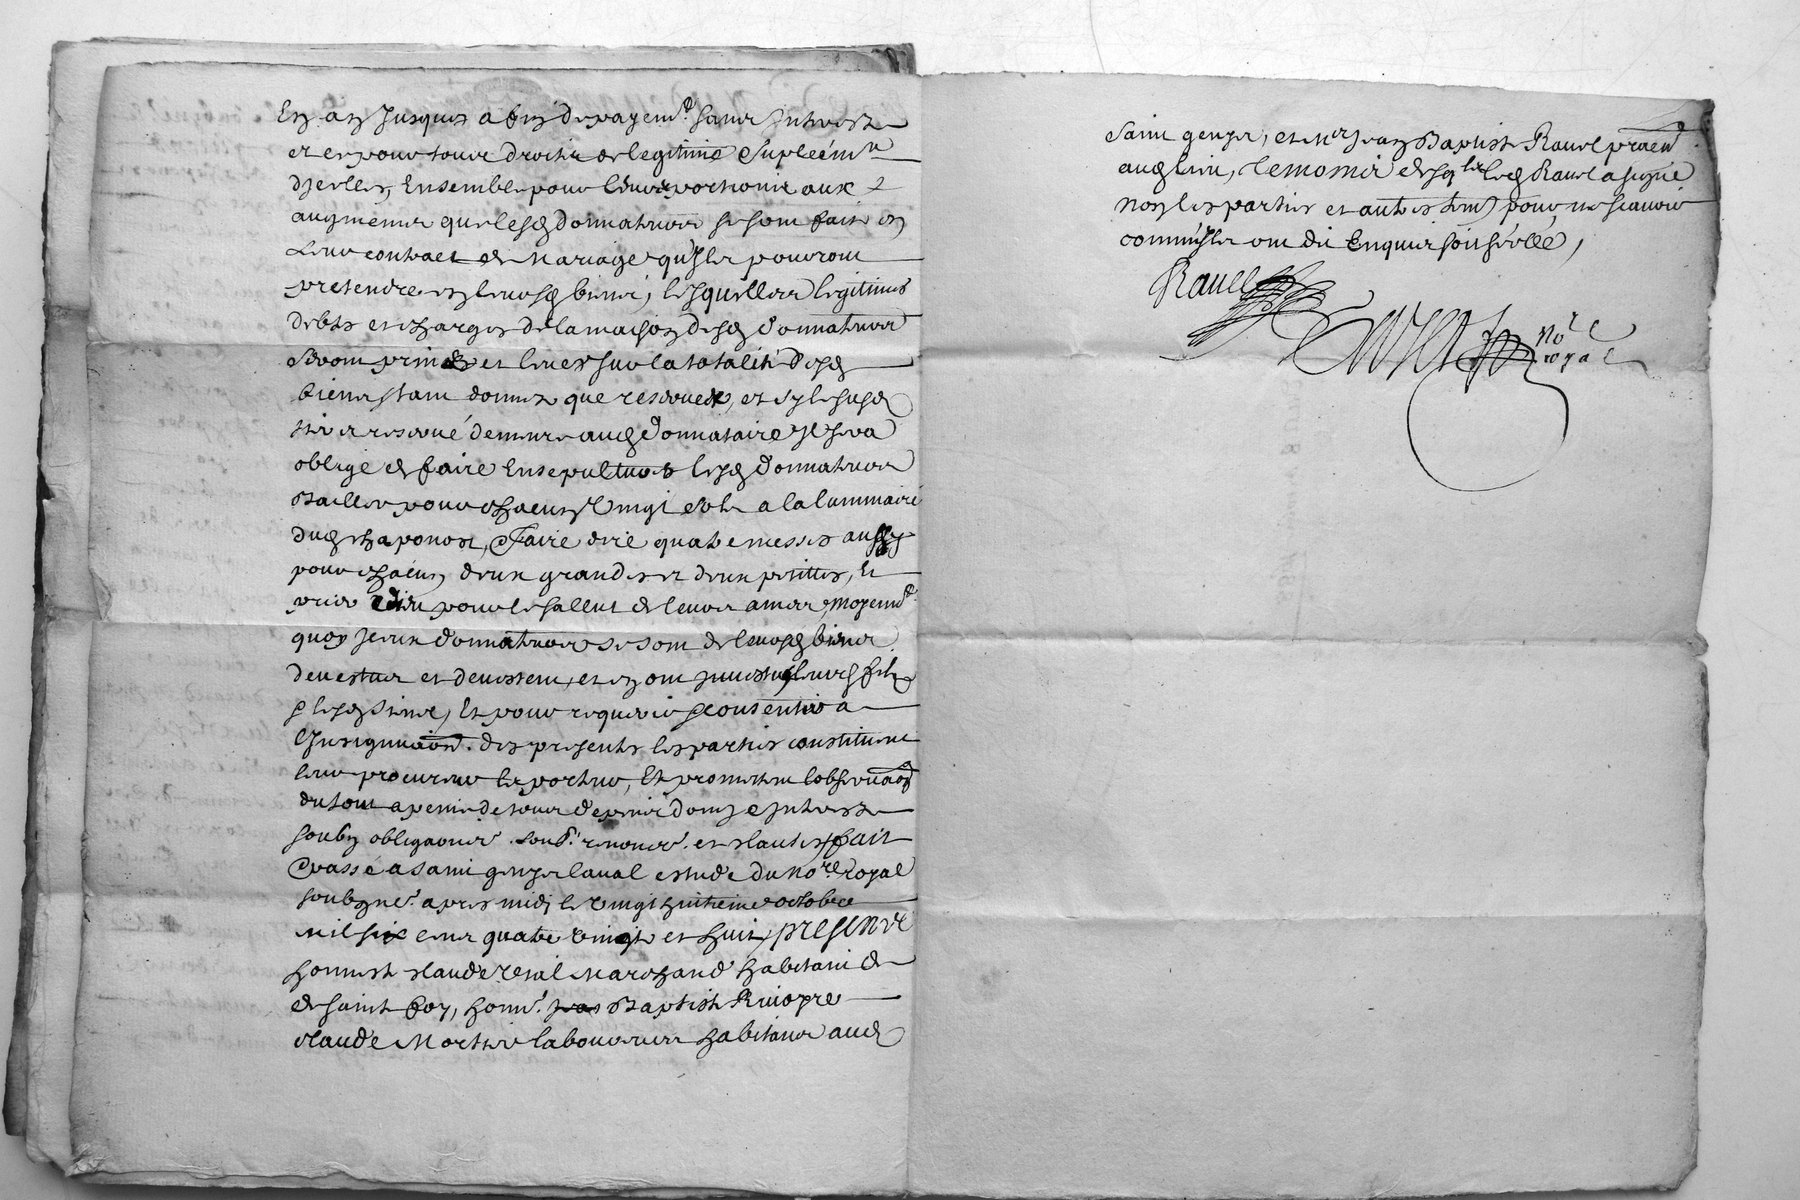 En an Jusques a fin de payem.t sans Interest
et ce pour tous droits de legitime Supleem.t
d'jcelles, Ensemble pour leurs portions aux
augmens que lesd donnateurs se sont faits en
Leur contract de Mariage qu'Ils pourront
pretendre en leursd biens, lesquelles legitimes
debts et charges de la maison desd donnateurs
seront prinses et leues sur la totalité desd
biens, tant donnez que reservez, et sy le susd
reservé demeure aud donnataire Il sera
obligé de faire Ensepulturer lesd donnateurs
Bailler pour chacun Vingt sols a la luminaire
dud chaponost, Faire dire quatre messes aussy
pour chacun, deux grandes et deux petittes, Et
prier dieu pour le sallut de leurs ames, Moyenn.t
quoy Iceux donnateurs se sont de leursd biens
devestus et devestent, et en ont Investu leurd fils
Et pour requerir & consentir a
l'Insignuaon. des presentes les parties constituent
leur procureur le porteur, Et promettent l'observaon
du tout a peine de tous depens dom.g et Interests
soubz obligaons. soub.s renonc.s et clauses, fait
& passé a Saint genys laval estude du No.re Royal
soubzne. apres midj le vingt huitieme octobre
mil six cens quatre vingts et huit, presents
honneste claude Marchand habitant de
de Sainte foy, honn.e Baptiste
claude Mortier laboureurs habitans aud
Saint genys, et M.re Jean Baptiste Ravel praen
aud lieu, temoins led Ravel a signé
non les parties et autres tem) pour ne scavoir
comm'Ils ont dit Enquis soussellé,
Ravel
No.re
royal